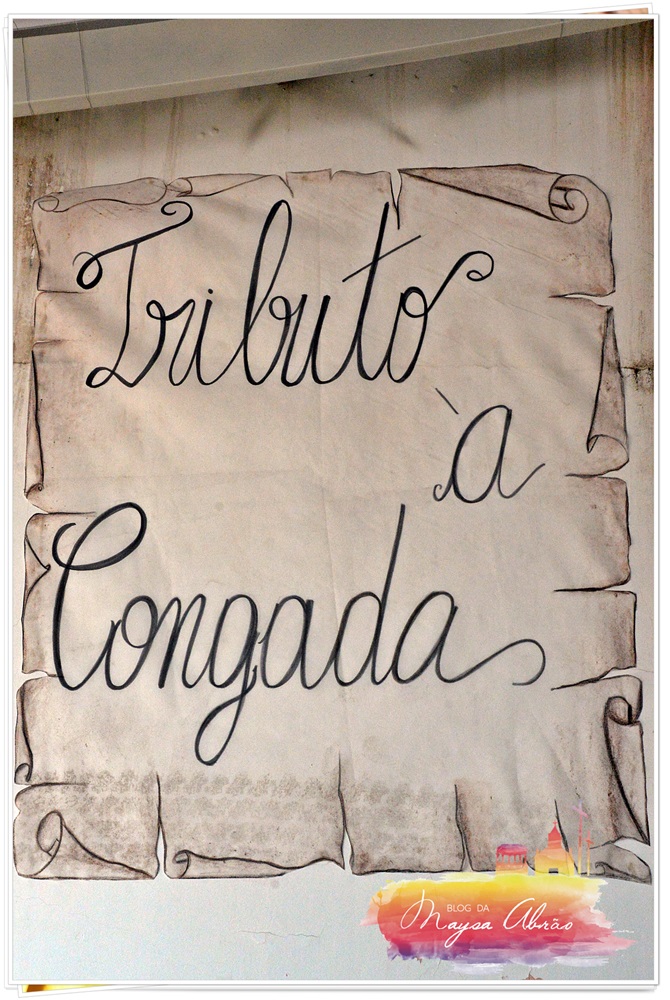 Tributo
à
Congada
BLOG DA
Maysa Abrão